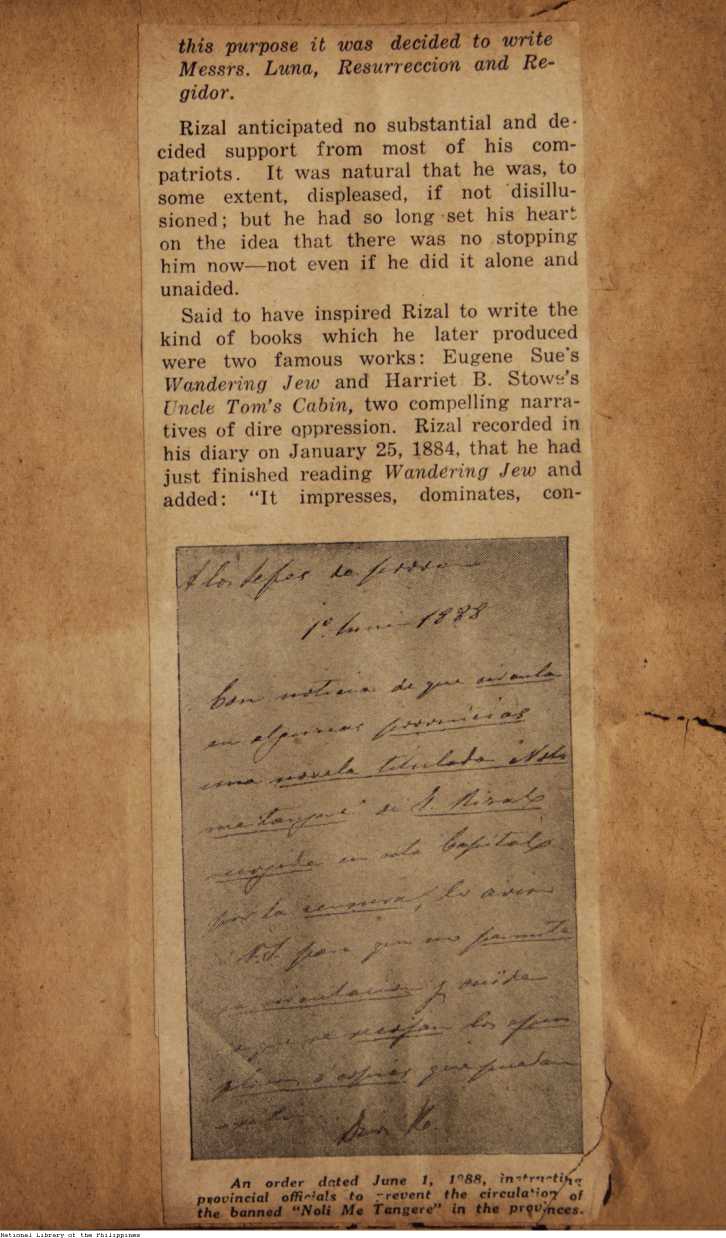 this purpose it was decided to write
Messrs. Luna, Resurreccion and Re-
gidor.
Rizal anticipated no substantial and de-
cided support from most of his com-
patriots. It was natural that he was, to
some extent, displeased, if not disillu-
sioned; but he had so long set his heart
on the idea that there was no stopping
him now—not even if he did it alone and
unaided.
Said to have inspired Rizal to write the
kind of books which he later produced
were two famous works: Eugene Sue's
Wandering Jew and Harriet B. Stowe's
Uncle Tom's Cabin, two compelling narra-
tives of dire oppression. Rizal recorded in
his diary on January 25, 1884, that he had
just finished reading Wandering Jew and
added: "It impresses, dominates, con-
A los Jefes de
1º Junio 1888
Con noticia de que circula
en algunas provincias
una novela titulada "Noli
me tangere" de J. Rizal
en esta Capital
por la censura, lo aviso
para que no permita
circulacion y cuide
que se recojan los ejem
plares que puedan
An order dated June 1, 1888, instructing
provincial officials to prevent the circulation of
the banned "Noli Me Tangere" in the provinces.
National Library of the Philippines